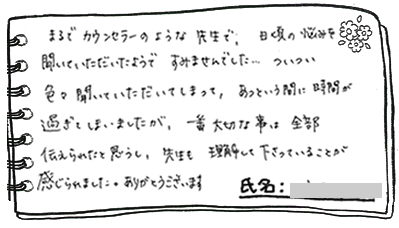 まるでカウンセラーのような先生で、日頃の悩みを
聞いていただいたようですみませんでした… ついつい
色々聞いていただいてしまって、あっという間に時間が
過ぎてしまいましたが、一番大切な事は全部
伝えられたと思うし、先生も理解して下さっていることが
感じられました。ありがとうございます
氏名: